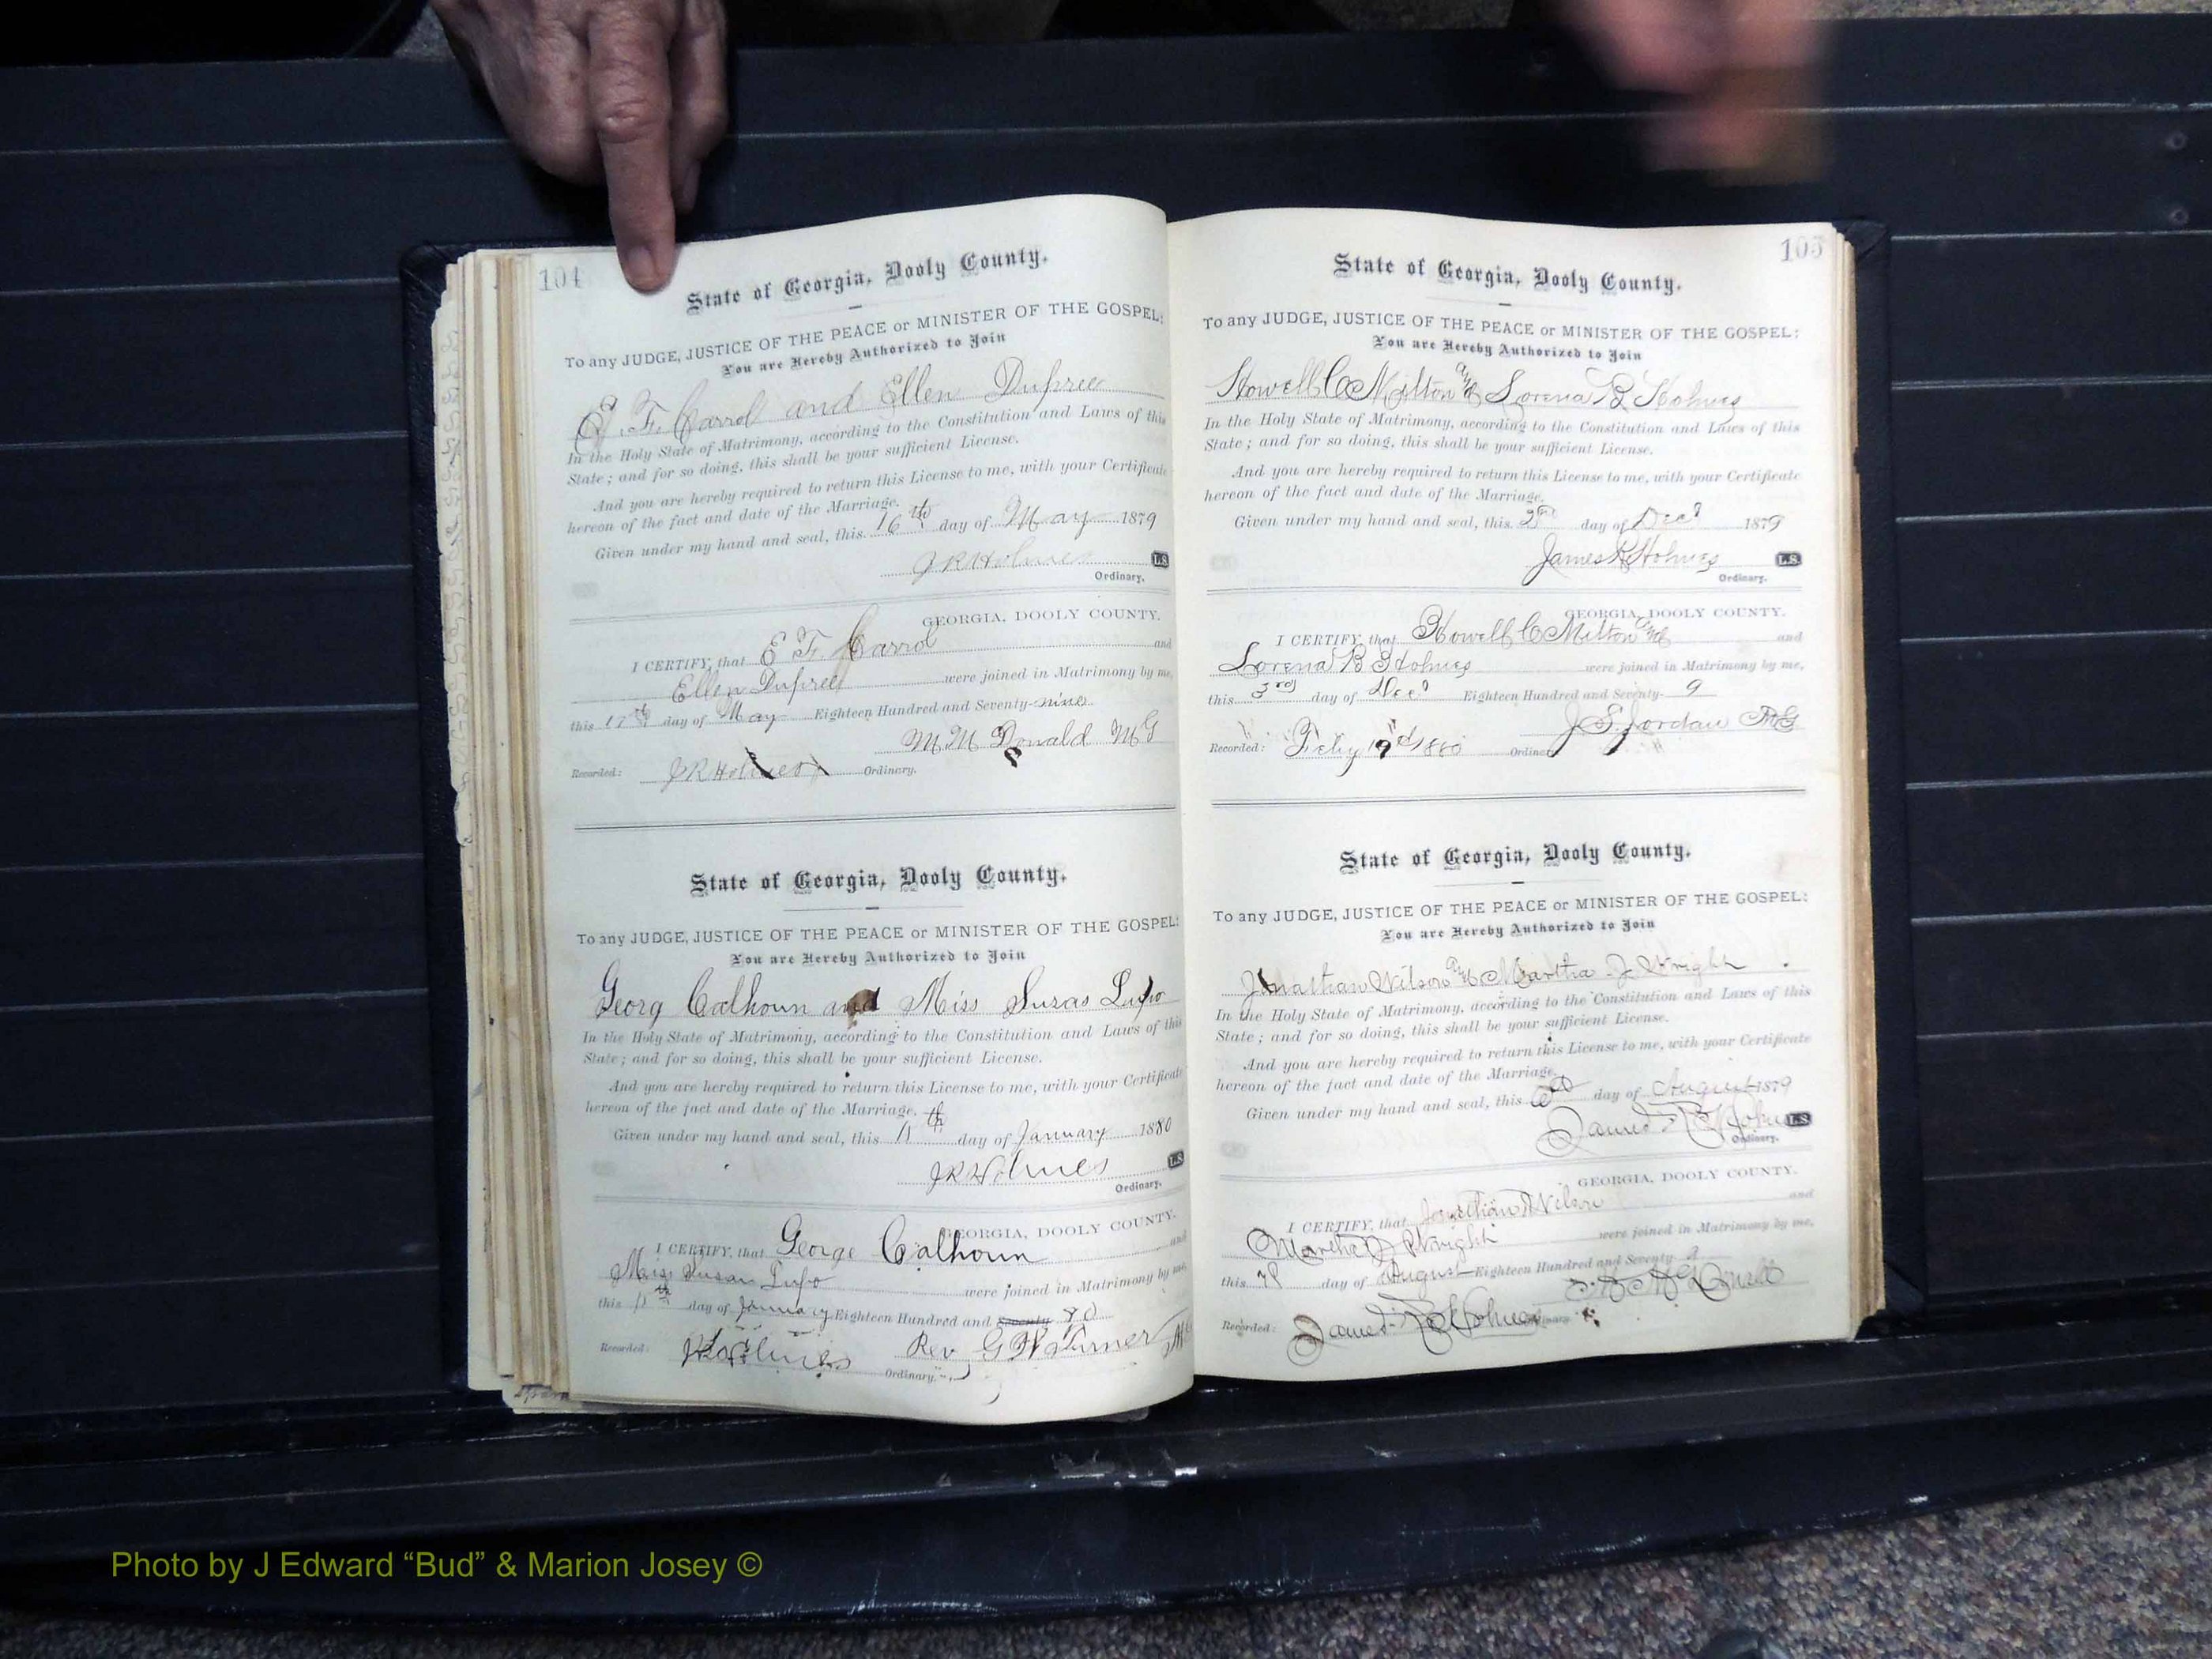 104
State of Georgia, Dooly County.
To any JUDGE, JUSTICE OF THE PEACE or MINISTER OF THE GOSPEL:
You are Hereby Authorized to Join
E. F. Carrol and Ellen Dupree
In the Holy State of Matrimony, according to the Constitution and Laws of this
State; and for so doing, this shall be your sufficient License.
And you are hereby required to return this License to me, with your Certificate
hereon of the fact and date of the Marriage.
Given under my hand and seal, this 16th day of May 1879
J R Holmes L.S.
Ordinary.
GEORGIA, DOOLY COUNTY.
I CERTIFY, that E F. Carrol and
Ellen Dupree were joined in Matrimony by me,
this 17th day of May Eighteen Hundred and Seventy-nine
M M Donald MG
Recorded: J R Holmes Ordinary.
State of Georgia, Dooly County.
To any JUDGE, JUSTICE OF THE PEACE or MINISTER OF THE GOSPEL:
You are Hereby Authorized to Join
Georg Calhoun and Miss Susas Lupo
In the Holy State of Matrimony, according to the Constitution and Laws of this
State; and for so doing, this shall be your sufficient License.
And you are hereby required to return this License to me, with your Certificate
hereon of the fact and date of the Marriage.
Given under my hand and seal, this 11th day of January 1880
J R Holmes L.S.
Ordinary.
GEORGIA, DOOLY COUNTY.
I CERTIFY, that George Calhoun and
Miss Susan Lupo were joined in Matrimony by me,
this 11th day of January Eighteen Hundred and Seventy 80
Rev G W Turner
Recorded: J R Holmes Ordinary.
105
State of Georgia, Dooly County.
To any JUDGE, JUSTICE OF THE PEACE or MINISTER OF THE GOSPEL:
You are Hereby Authorized to Join
Howell C Milton and Lorena B Holmes
In the Holy State of Matrimony, according to the Constitution and Laws of this
State; and for so doing, this shall be your sufficient License.
And you are hereby required to return this License to me, with your Certificate
hereon of the fact and date of the Marriage.
Given under my hand and seal, this day of Decr 1879
James R Holmes L.S.
Ordinary.
GEORGIA, DOOLY COUNTY.
I CERTIFY, that Howell C Milton and and
Lorena B Holmes were joined in Matrimony by me,
this 3rd day of Decr Eighteen Hundred and Seventy- 9
J. S. Jordan MG
Recorded: Feby 19d 1880 Ordinary
State of Georgia, Dooly County.
To any JUDGE, JUSTICE OF THE PEACE or MINISTER OF THE GOSPEL:
You are Hereby Authorized to Join
Jonathan Wilson and Martha J Wright
In the Holy State of Matrimony, according to the Constitution and Laws of this
State; and for so doing, this shall be your sufficient License.
And you are hereby required to return this License to me, with your Certificate
hereon of the fact and date of the Marriage.
Given under my hand and seal, this day of August 1879
James R Holmes L.S.
Ordinary.
GEORGIA, DOOLY COUNTY.
I CERTIFY, that Jonathan Wilson and
Martha J Wright were joined in Matrimony by me,
this day of August Eighteen Hundred and Seventy 9
Recorded: James R Holmes Ordinary
Photo by J Edward “Bud” & Marion Josey ©